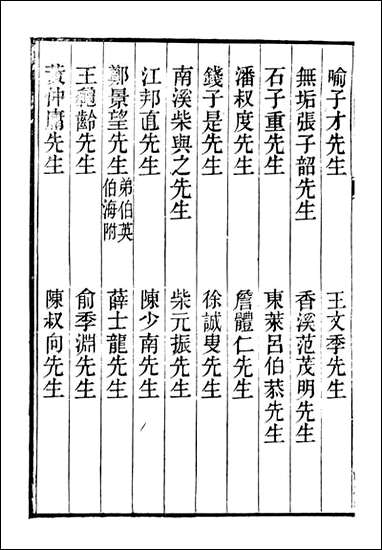 喻子才先生 王文季先生
無垢張子韶先生 香溪范茂明先生
石子重先生 東萊呂伯恭先生
潘叔度先生 詹體仁先生
錢子是先生 徐誠叟先生
南溪柴與之先生 柴元振先生
江邦直先生 陳少南先生
鄭景望先生弟伯英伯海附 薛士龍先生
王龜齡先生 俞季淵先生
黃仲庸先生 陳叔向先生